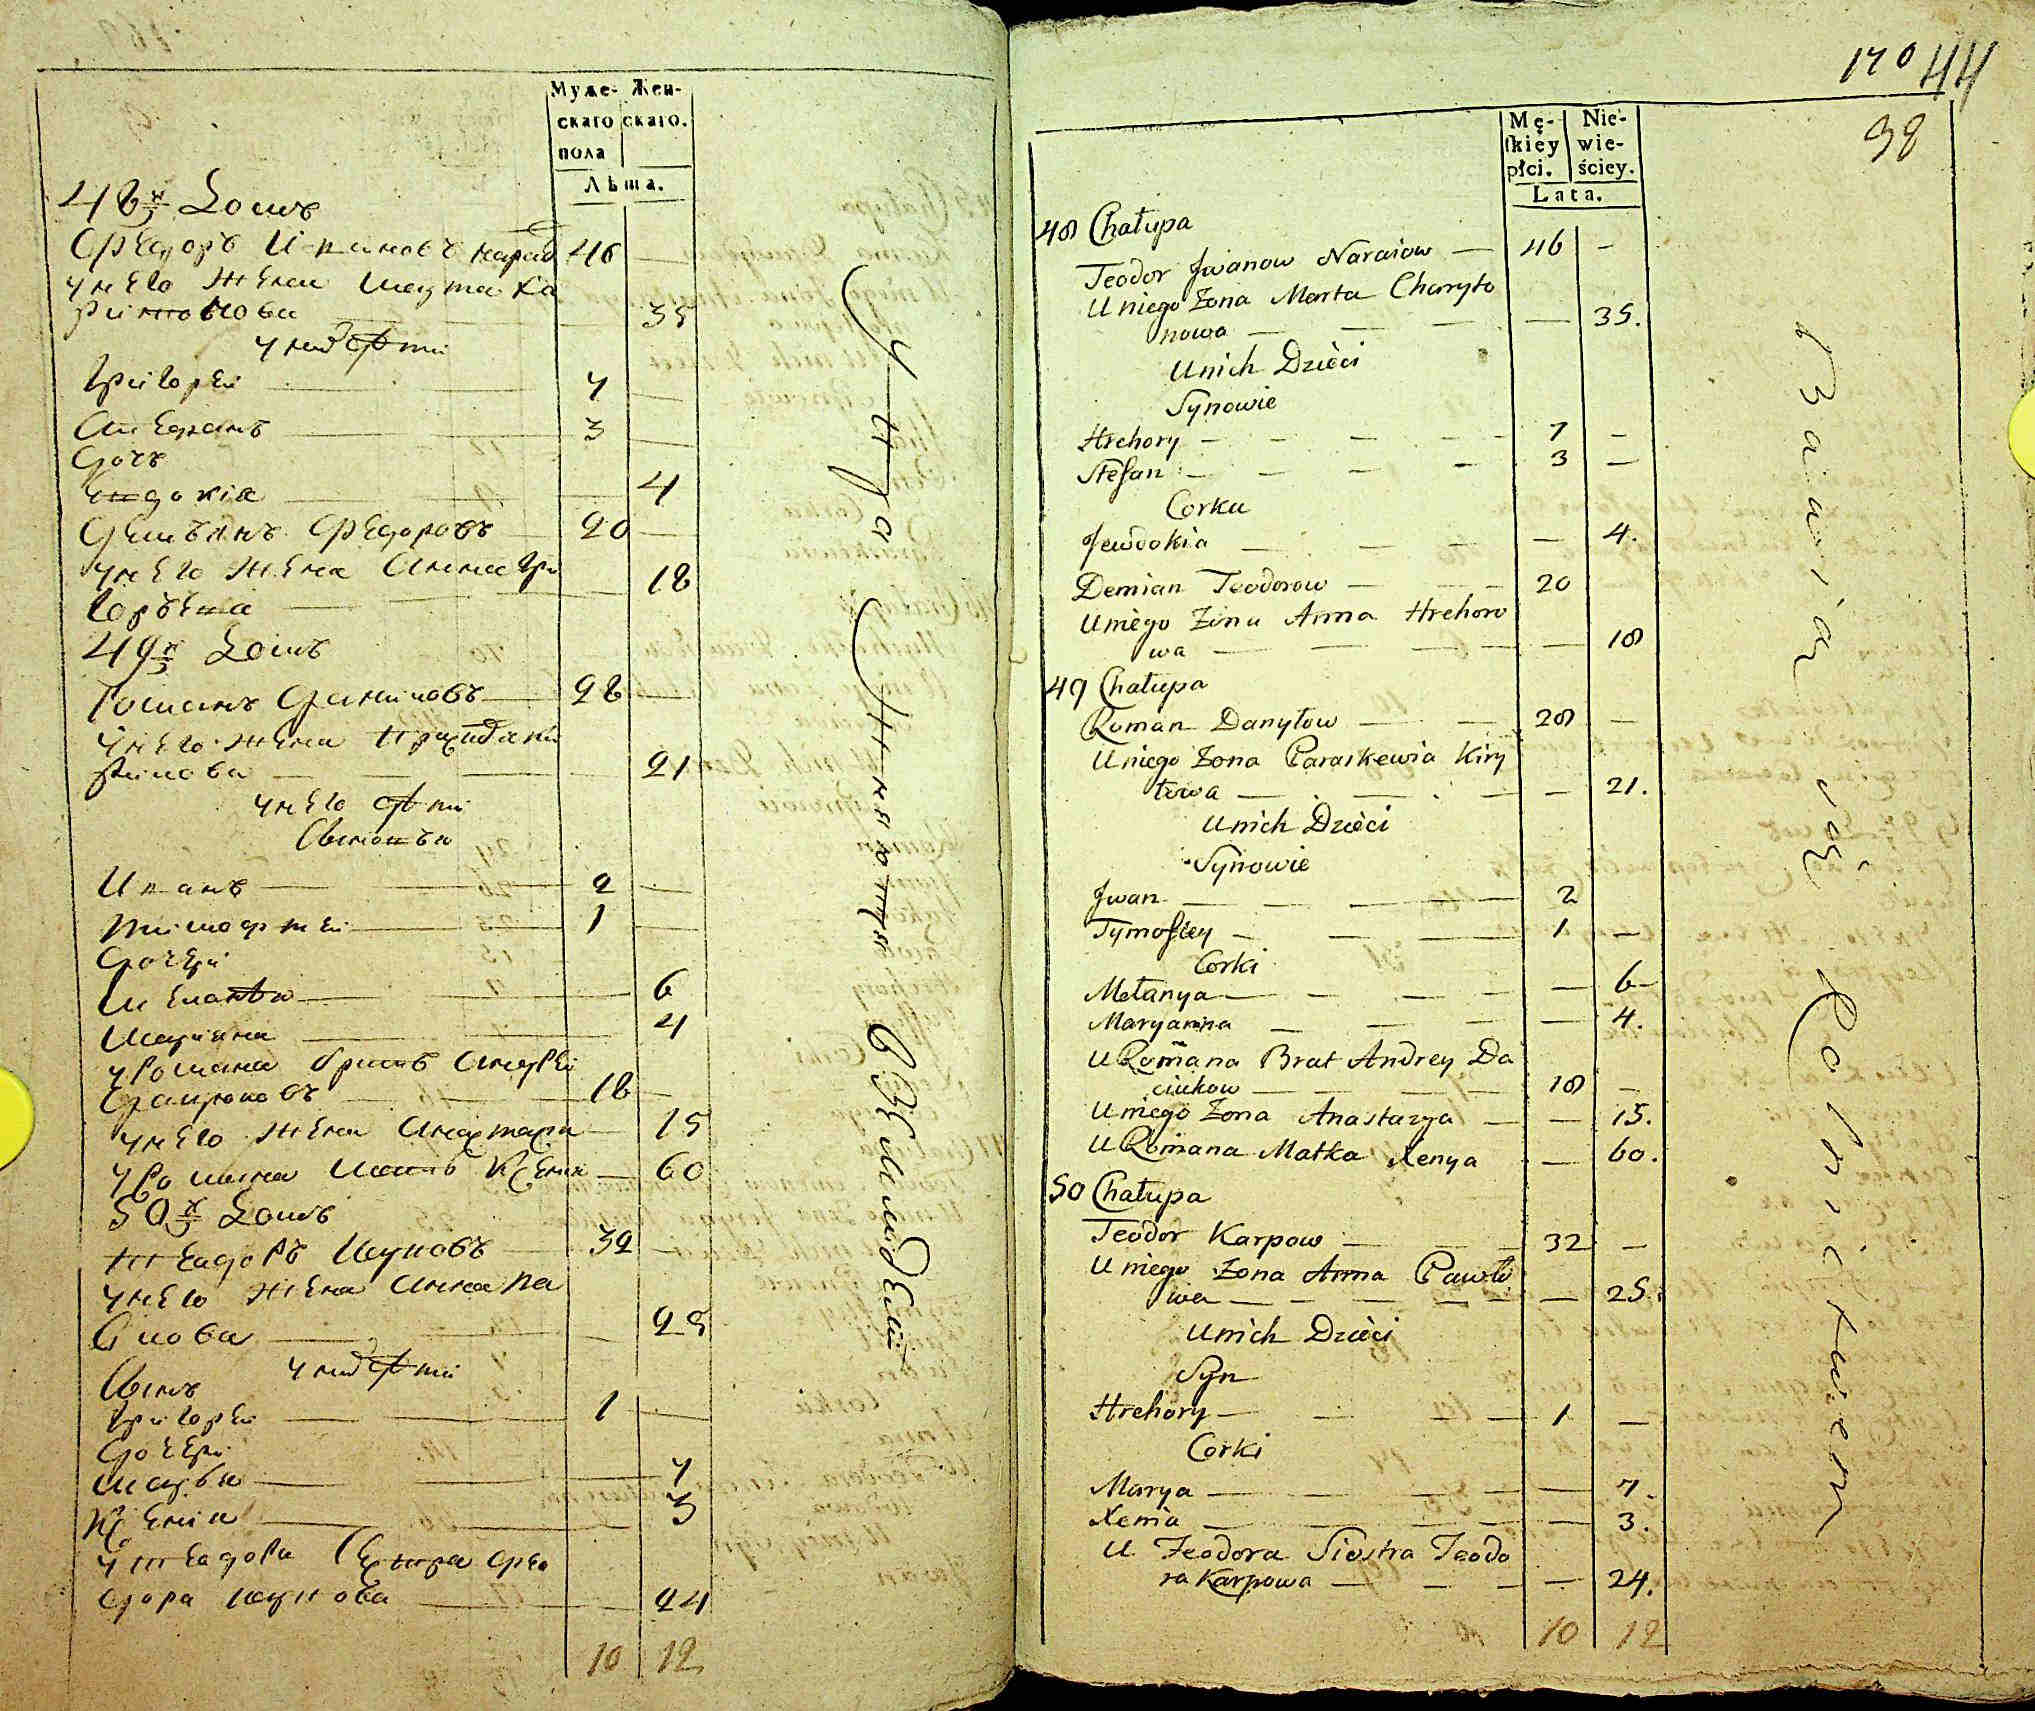 Муже- Жен-
скаго скаго.
пола
Лѣта.
48й Домъ
Федоръ Ивановъ Нарай 46
у него жена Марта Ха
ритонова 35
у них дѣти
Григорей 7
Стефанъ 3
Дочь
Евдокія 4
Демьянъ Федоровъ 20
у него жена Анна Гри
горьева 18
49й Домъ
Романъ Даниловъ 28
у него жена Ки
рилова 21
у него дѣти
Сыновья
Иванъ 2
Тимофей 1
Дочери
Меланья 6
Марияна 4
у Романа братъ Андрей
18
у него жена Анастасия 15
у Романа мать Ксения 60
50й Домъ
Феадоръ Карповъ 32
у него жена Анна Па
влова 25
у них дѣти
Сынъ
Григорей 1
Дочери
Марья 7
Ксения 3
у Феадора Сестра Фео
дора Карпова 24
10 12
Суда
в земледелии
170 44
38
Mę- Nie-
ſkiéy wie-
płci. ściey.
Lata.
48 Chałupa
Teodor Jwanow Naraiow — 46 —
U niego Zona Marta Charyto
nowa — — — — 35.
Unich Dzieci
Synowie
Hrehory — — — — 7 —
Stefan — — — — 3 —
Corka
Jewdokia — — — — 4.
Demian Teodorow — — — 20
U niego Zona Anna Hrehoro
wa — — — — 18
49 Chałupa
Roman Danyłow — — 28 —
U niego Zona Paraskewia Kiry
łowa — — — — 21.
Unich Dzieci
Synowie
Jwan — — — — 2
Tymofiey — — — 1 —
Corki
Mełanya — — — — — 6 —
Maryanna — — — — 4.
U Romana Brat Andrey Da
ciukow — — — — 18 —
U niego Zona Anastazya — — 15.
U Romana Matka Xenya — 60.
50 Chałupa
Teodor Karpow — — — 32 —
U niego Zona Anna Pawło
wa — — — — — 25.
Unich Dzieci
Syn
Hrehory — — — — 1 —
Corki
Marya — — — — — 7.
Xenia — — — — — 3.
U Teodora Siostra Teodo
ra Karpowa — — — — 24.
10 12
Bawią się Rolnictwem